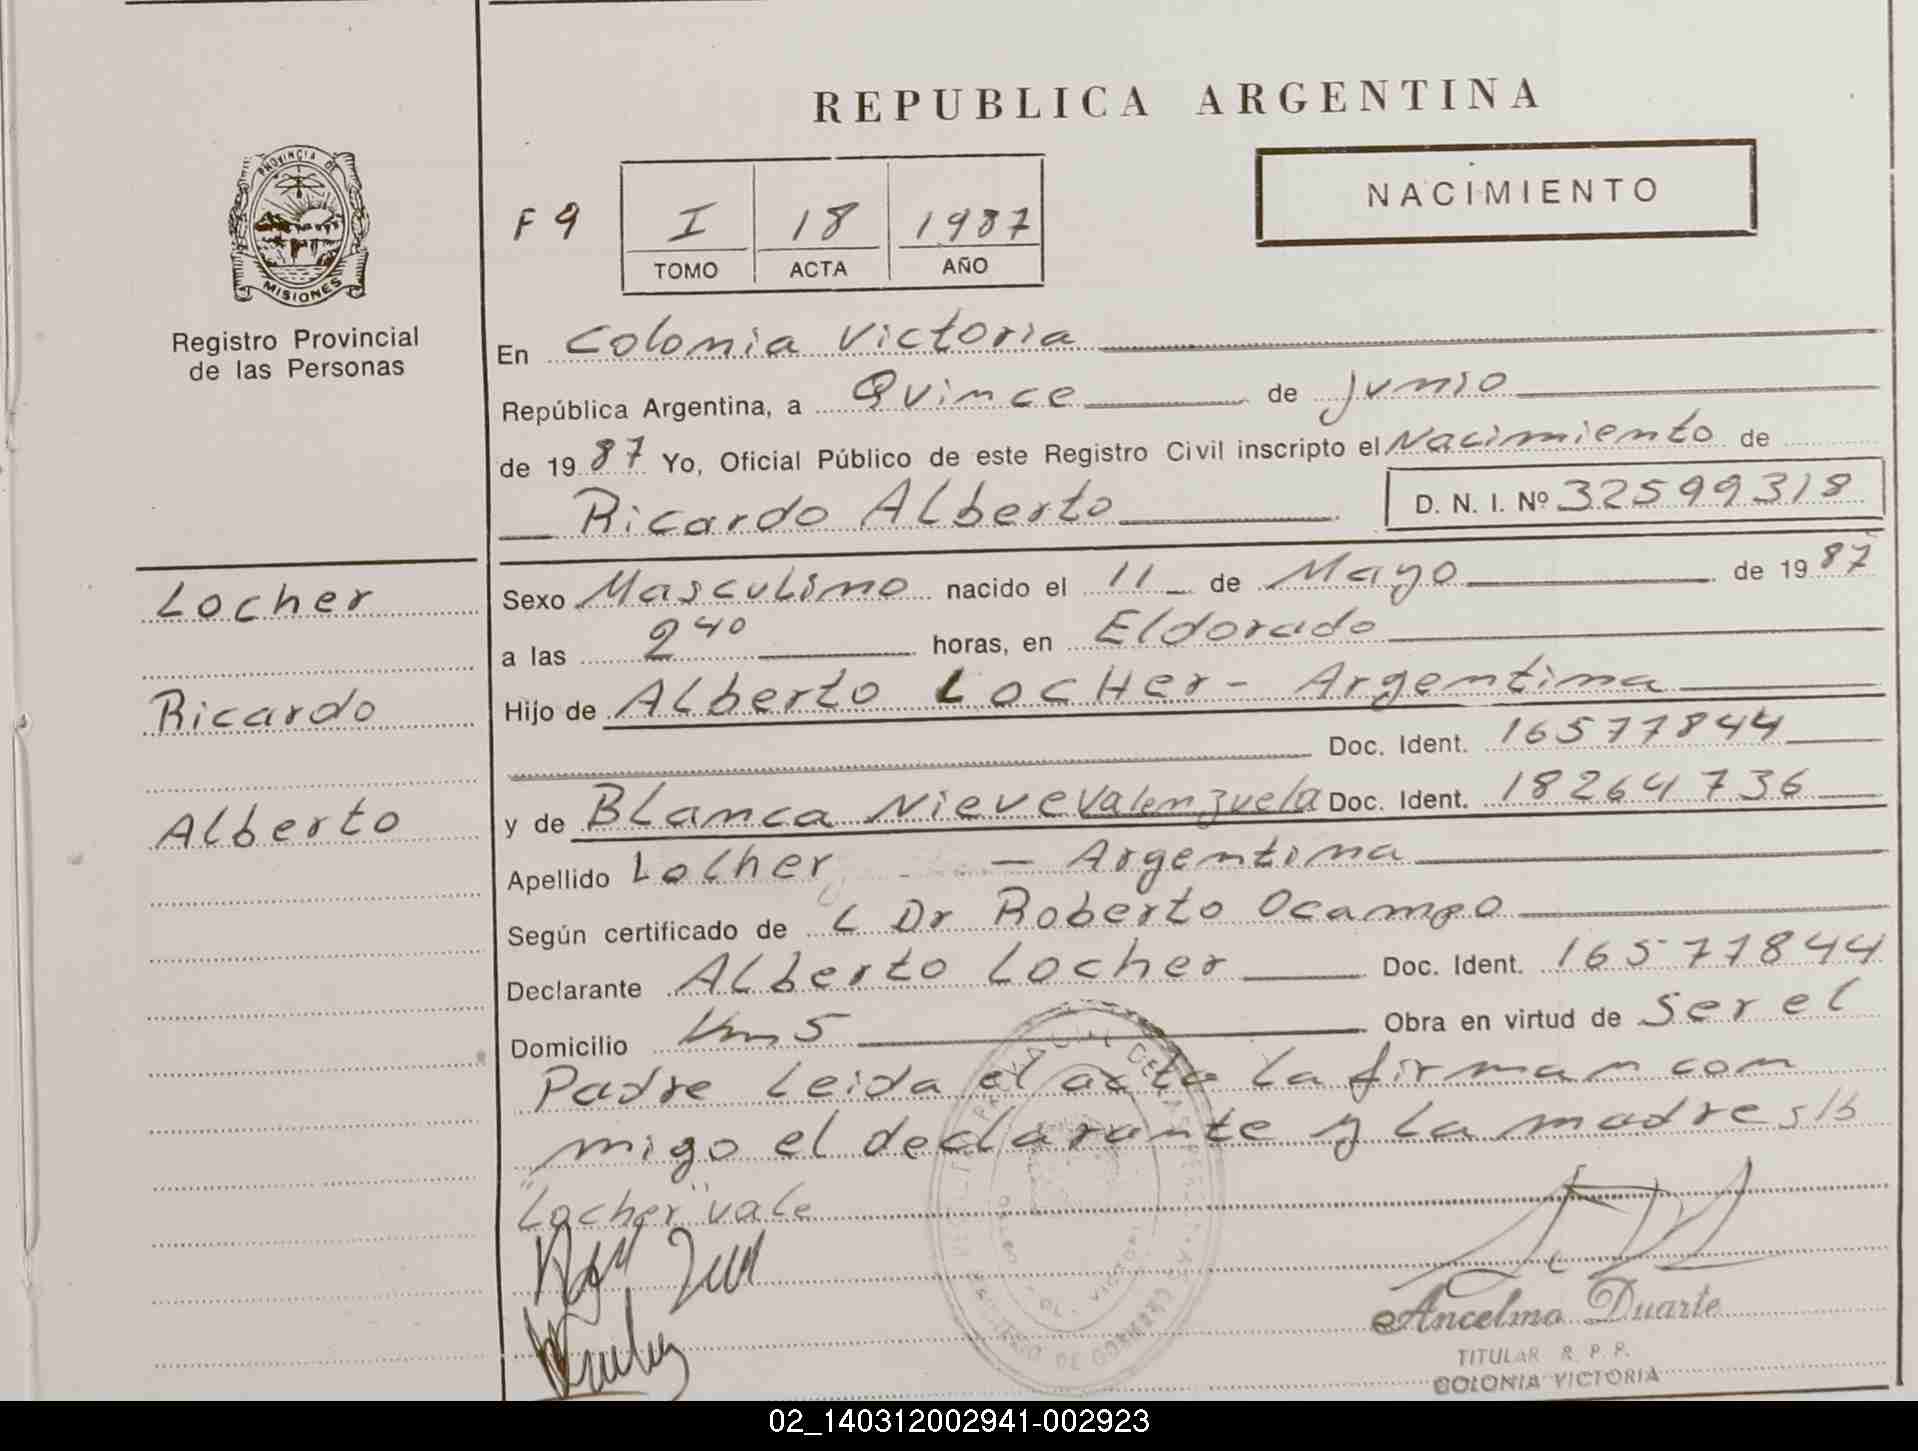 REPUBLICA ARGENTINA
PROVINCIA DE
MISIONES
Registro Provincial
de las Personas
F 9
I 18 1987
TOMO ACTA AÑO
NACIMIENTO
En Colonia Victoria
República Argentina, a Quince de Junio
de 1987 Yo, Oficial Público de este Registro Civil inscripto el Nacimiento de
Ricardo Alberto D. N. I. Nº 32599318
Locher
Ricardo
Alberto
Sexo Masculino nacido el 11 de Mayo de 1987
a las 2 40 horas, en Eldorado
Hijo de Alberto Locher - Argentina
Doc. Ident. 16577844
y de Blanca Nieve Valenzuela Doc. Ident. 18264736
Apellido Locher - Argentina
Según certificado de L Dr Roberto Ocampo
Declarante Alberto Locher Doc. Ident. 16577844
Domicilio Km 5 Obra en virtud de Ser el
Padre Leida el acta La firman con
migo el declarante y La madre s/b
"Locher" vale
Ancelmo Duarte
TITULAR R. P. P.
COLONIA VICTORIA
02_140312002941-002923